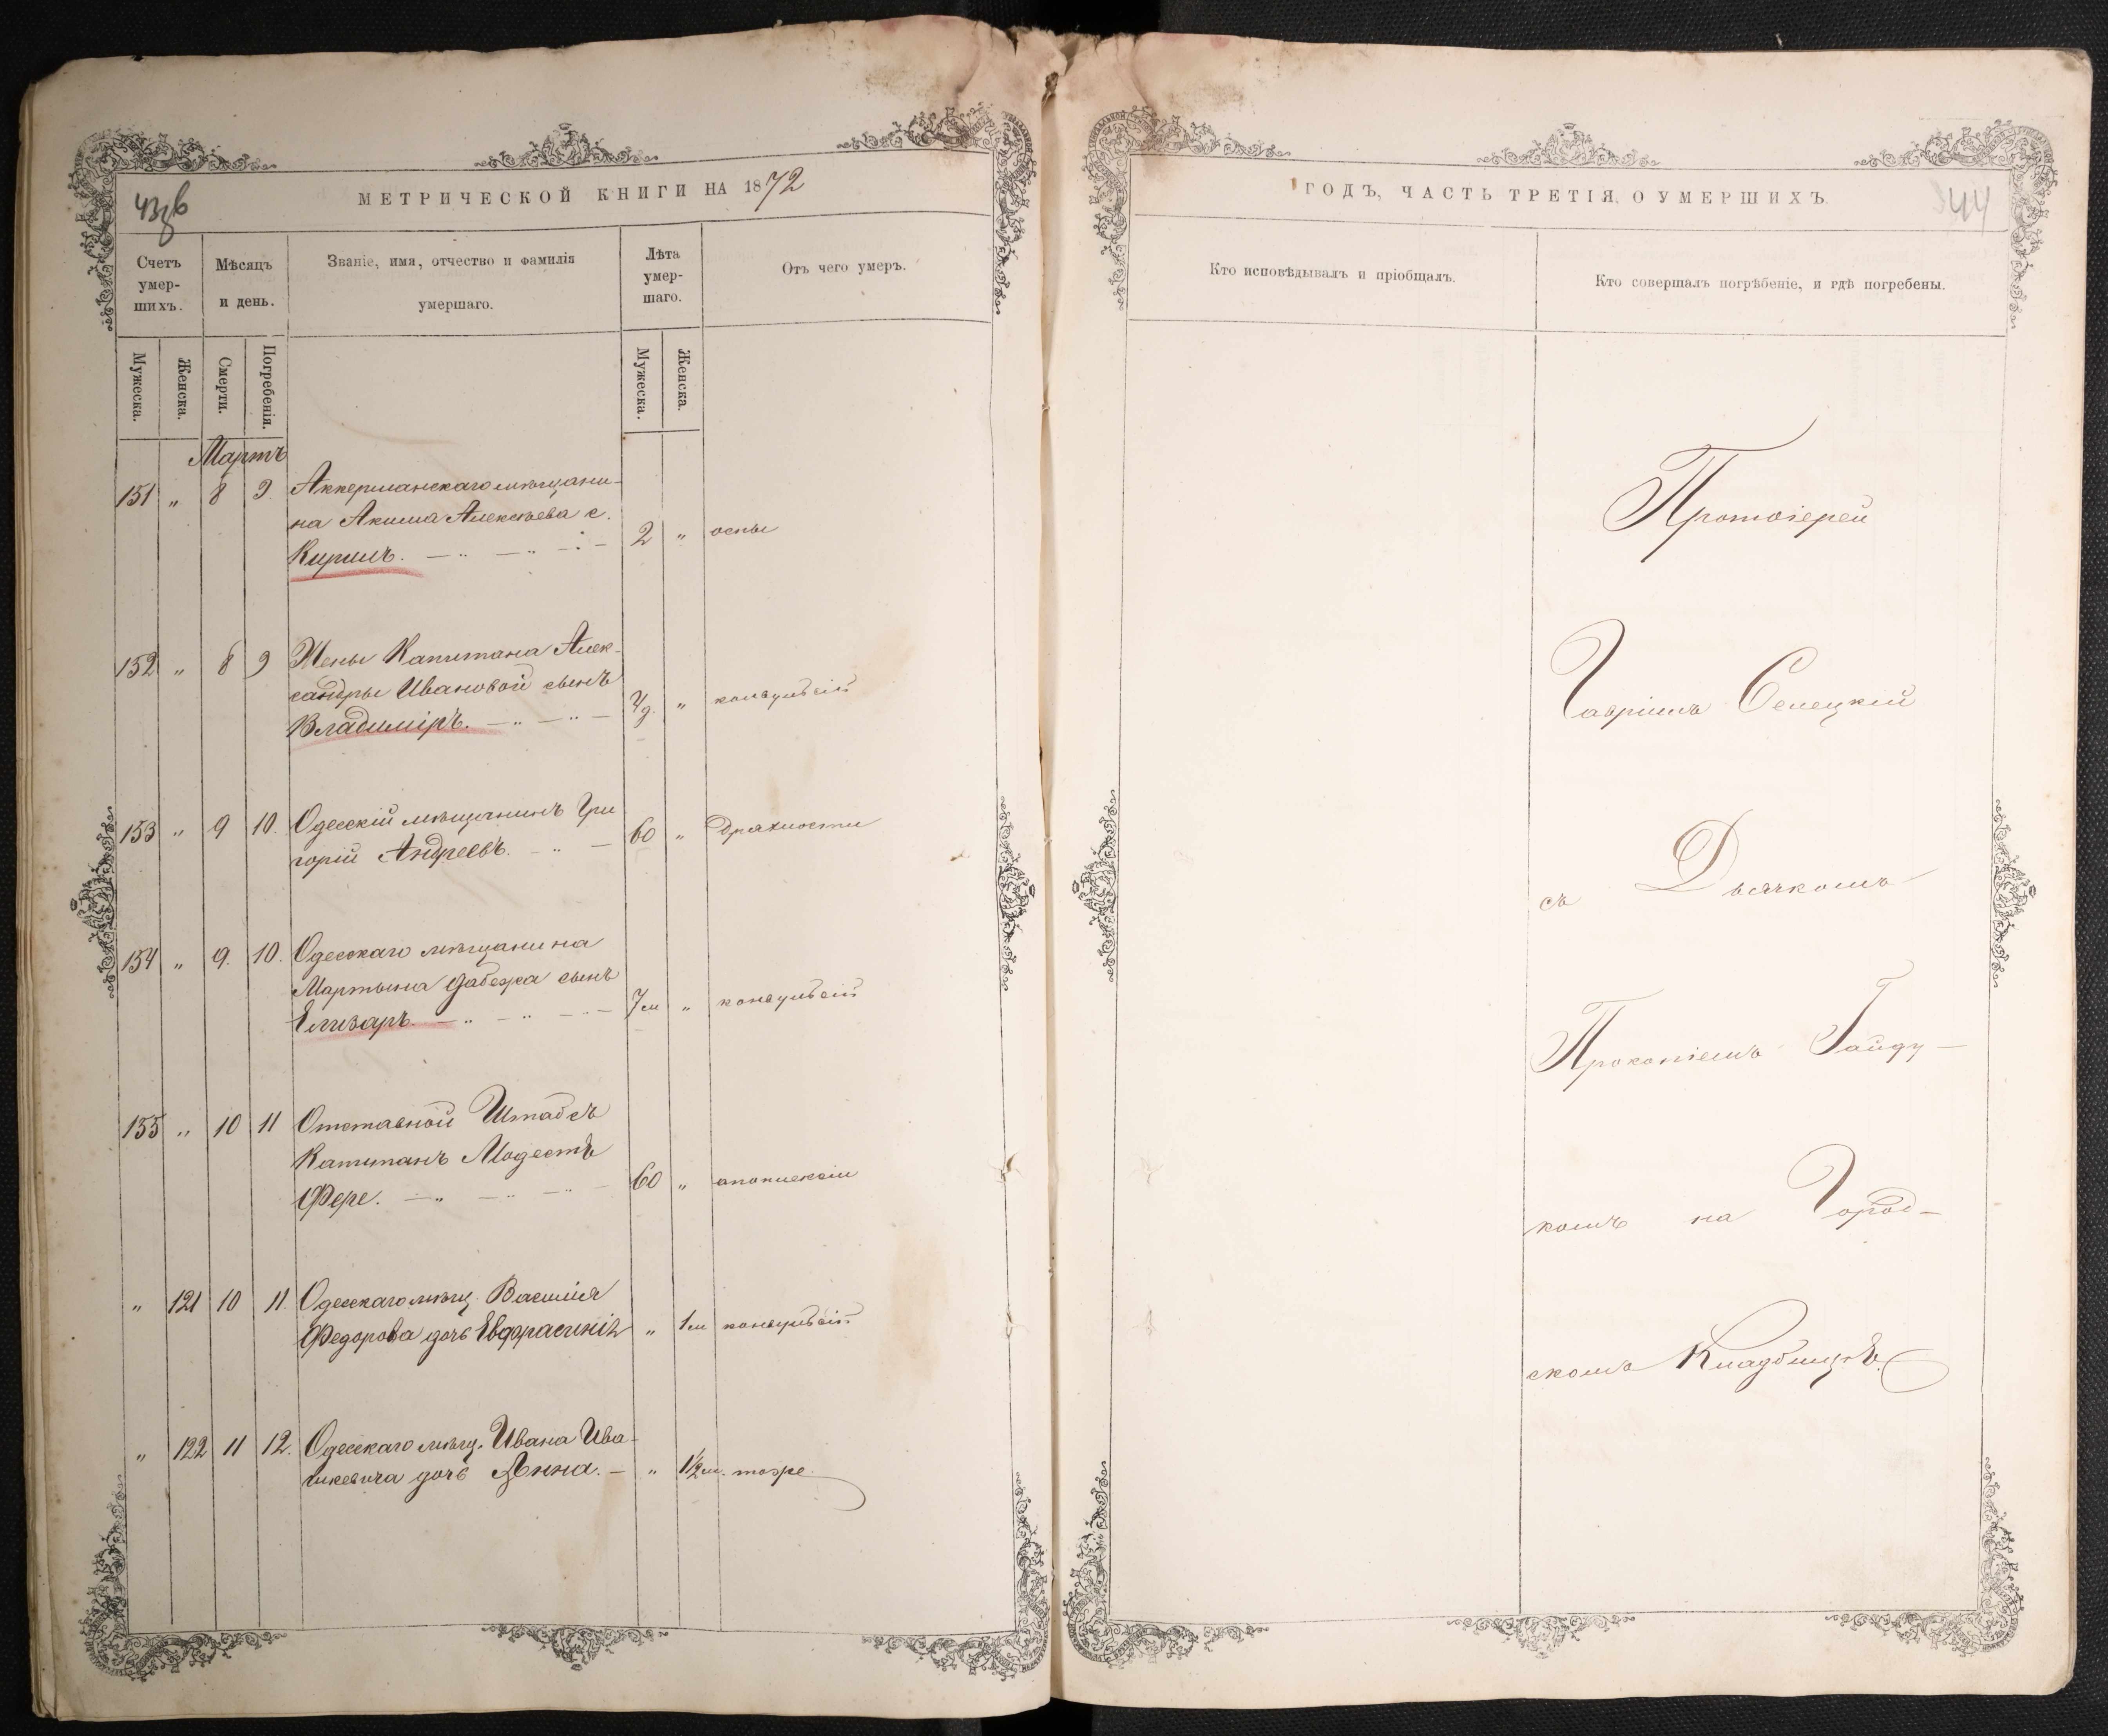 МЕТРИЧЕСКОЙ КНИГИ НА 1872
Счетъ умер-шихъ.
Мѣсяцъ и день.
Званіе, имя, отчество и фамилія умершаго.
Лѣта умер-шаго.
Отъ чего умеръ.
Мужеска.
Женска.
Смерти.
Погребенія.
Мужеска.
Женска.
Мартъ
151 " 8 9 Аккерманскаго мѣщани-
на Акима Алексѣева с.
Кирилъ. 2 " оспы
152 " 8 9 Жены Капитана Алек-
сандры Ивановой сынъ
Владиміръ. 4д. " конвульсій
153 " 9 10. Одесскій мѣщанинъ Гри
горій Андреевъ. 60 " дряхлости
154 " 9. 10. Одесскаго мѣщанина
Мартына сынъ
Елизаръ. 7м " конвульсій
155 " 10 11 Отставной Штабсъ
Капитанъ Модестъ
Фере. 60 " апоплексіи
" 121 10 11. Одесскаго мѣщ. Василія
Федорова дочь Евфрасинія " 1м конвульсій
" 122 11 12. Одесскаго мѣщ. Ивана Ива-
шкевича дочь Анна. " 1½м. тоже.
ГОДЪ, ЧАСТЬ ТРЕТІЯ, О УМЕРШИХЪ.
44
Кто исповѣдывалъ и пріобщалъ.
Кто совершалъ погрѣбеніе, и гдѣ погребены.
Протоіерей
Гавріилъ Селецкій
съ Дьячкомъ
Прокопіемъ Гайду-
комъ на Город-
скомъ Кладбищѣ.